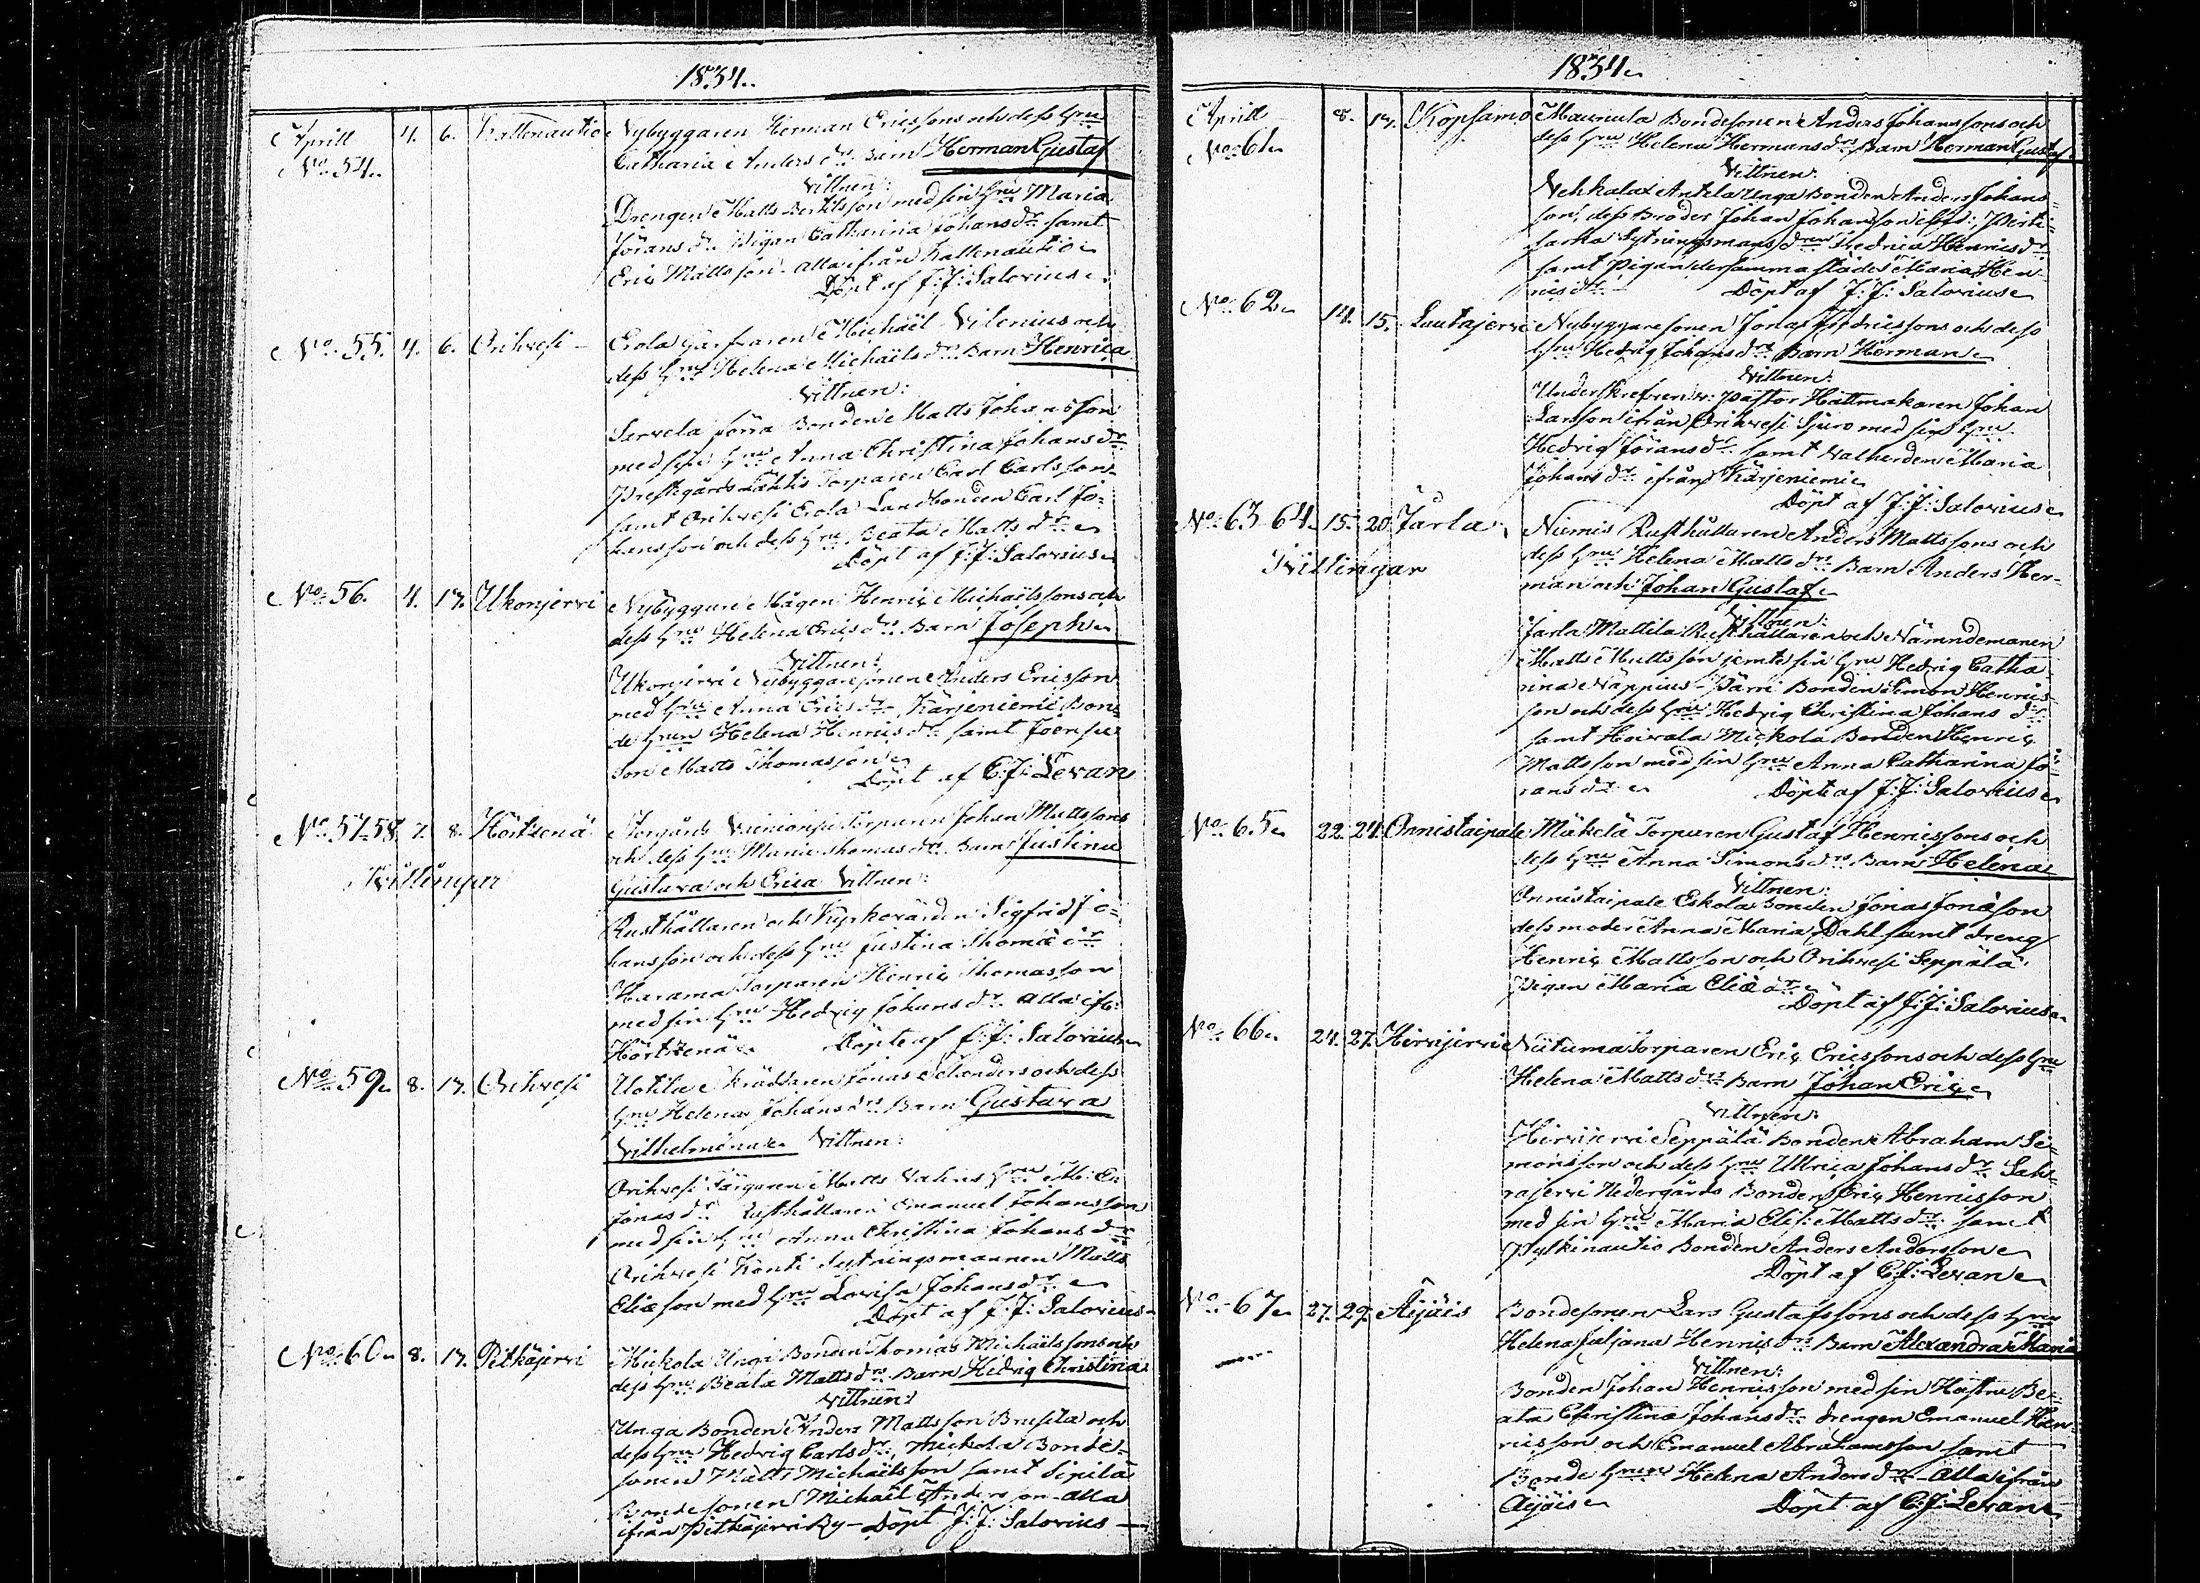 1834.
Aprill 4. 6. Kattenautio Nybyggaren Herman Ericssons och dess Hru
No 54. Catharia Anders dr Barn Herman Gustaf
Vittnen:
Drengen Matts Bertilsson med sin Hru Maria
Jörans dr Pigan Catharina Johans dr samt
Eric Mattsson alla ifrån Kattenautio
Döpt af J: J: Salovius
No 55. 4. 6. Orihvesi Erola Garfvaren Michaël Vilenius och
dess Hru Helena Michaëls dr Barn Henrica
Vittnen:
Servela förra Bonden Matts Johansson
med sin Hru Anna Christina Johans dr
Prestgårds Lahtis Torparen Carl Carlsson
samt Orihvesi Erola Landbonden Carl Jo-
hansson och dess Hru Beata Matts dr
Döpt af J: J: Salovius
No 56. 4. 17. Ukonjervi Nybyggare Mågen Henric Michaëlssons och
dess Hru Helena Erics dr Barn Joseph
Vittnen:
Ukonjervi Nybyggaresonen Anders Ericsson
med Hru Anna Erics dr Kärjeniemi Bon-
de Hrun Helena Henrics dr samt
Son Matts Thomasson
Döpt af C: J: Levan
No 57-58. 7. 8. Hörtsenä Storgårds Torparen Johan Mattssons
och dess Hru Maria Thomas dr Barn Justina
Tvillingar Gustava och Erica Vittnen:
Rusthållaren och Kyrkovärden Sigfrid Jo-
hansson och dess Hru Justina Thomæ dr
Harama Torparen Henric Thomasson
med sin Hru Hedvig Johans dr alla ifr:
Hörtsenä Döpte af J: J: Salovius
No 59. 8. 17. Orihvesi Uotila Skräddaren Jonas Selanders och dess
Hru Helena Johans dr Barn Gustava
Vilhelmina Vittnen:
Orihvesi Färgaren Matts Valins Hru M: El:
Jonas dr Rusthållaren Emanuel Johansson
med sin Hru Anna Christina Johans dr
Orihvesi Konti Sytningsmannen Matts
Eliæson med Hru Lovisa Johans dr
Döpt af J: J: Salovius
No 60. 8. 17. Pitkäjervi Mickola Unga Bonden Thomas Michaëlssons och
dess Hru Beata Matts dr Barn Hedvig Christina
Vittnen:
Unga Bonden Anders Mattsson Brusila och
dess Hru Hedvig Carls dr, Mickola Bonde-
sonen Matts Michaëlsson samt Sipilä
Bondesonen Michaël Andersson alla
ifrån Pitkäjervi By - Döpt J: J: Salovius
1834.
Aprill 8. 17. Kopsamo Maunula Bondesonen Anders Johanssons och
No 61. dess Hru Helena Hermans dr Barn Herman Gustaf
Vittnen:
Vehkalax Antila Unga Bonden Anders Johans-
son, dess Broder Johan Johansson
Sytningsmans dren Hedvig Henrics dr
samt Pigan dersammastädes Maria Hen-
rics dr Döpt af J: J: Salovius
No 62. 14. 15. Lautajervi Nybyggaresonen Jonas Fredricssons och dess
Hru Hedvig Johans dr Barn Herman
Vittnen:
Underskrefven v: Pastor Hattmakaren Johan
Larsson ifrån Orihvesi Sjuro med sin Hru
Hedvig Jörans dr samt Vallherden Maria
Johans dr ifrån Kärjeniemi
Döpt af J: J: Salovius
No 63-64. 15. 20. Jarla Niemis Rusthållaren Anders Mattssons och
Tvillingar dess Hru Helena Matts dr Barn Anders Her-
man och Johan Gustaf
Vittnen:
Jarla Mattila Rusthållaren och Nämndemanen
Matts Mattsson jemte sin Hru Hedvig Catha-
rina Näppius Pärri Bonden Simon Henrics-
son och dess Hru Hedvig Christina Johans dr
samt Hoivala Mickola Bonden Henric
Mattsson med sin Hru Anna Catharina Jö-
rans dr Döpte af J: J: Salovius
No 65. 22. 24. Onnistaipale Mäkelä Torparen Gustaf Henricssons och
dess Hru Anna Simons dr Barn Helena
Vittnen:
Onnistaipale Eskola Bonden Jonas Jonæson
dess moder Anna Maria Dahl samt dreng
Henric Mattsson och Orihvesi Seppälä
Pigan Maria Eliæ dr
Döpt af J: J: Salovius
No 66. 24. 27. Hirvijervi Niituma Torparen Eric Ericssons och dess Hru
Helena Matts dr Barn Johan Eric
Vittnen:
Hirvijervi Seppälä Bonden Abraham Si-
monsson och dess Hru Ullrica Johans dr Sak-
rajervi Nedergårds Bonden Eric Henricsson
med sin Hru Maria Elis: Matts dr samt
Pylkinautio Bonden Anders Andersson
Döpt af C: J: Levan
No 67. 27. 29. Äijäis Bondesonen Lars Gustafssons och dess Hru
Helena Juljana Henrics dr Barn Alexandra Maria
Vittnen:
Bonden Johan Henricsson med sin Hustru Be-
ata Christina Johans dr drengen Emanuel Hen-
ricsson och Emanuel Abrahamsson samt
Bonde Hrun Helena Anders dr alla ifrån
Äijäis Döpt af C: J: Levan